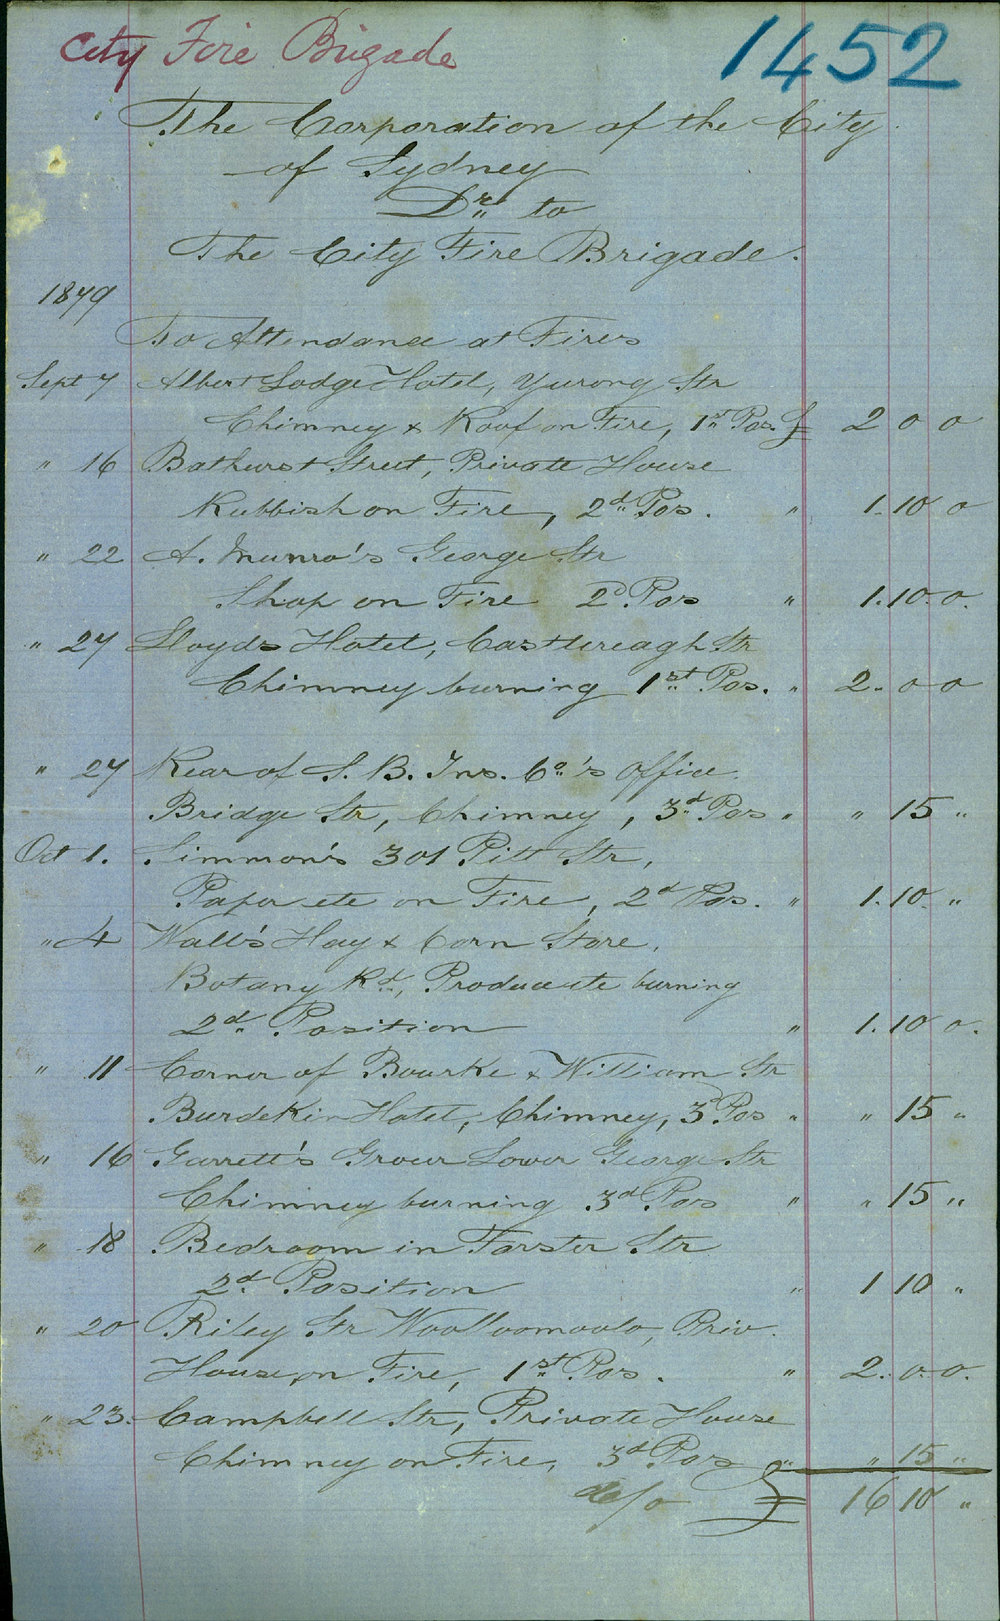 City Fire Brigade
1452
The Corporation of the City
of Sydney
Dr. to
The City Fire Brigade.
1879
To Attendance at Fires
Sept 7 Albert Lodge Hotel, Yurong Str
Chimney & Roof on Fire, 1st Pos. £ 2 0 0
" 16 Bathurst Street, Private House
Rubbish on Fire, 2d Pos. " 1. 10 0
" 22 A. Munro's George Str
Shop on Fire 2D Pos " 1. 10. 0.
" 27 Lloyds Hotel, Castlereagh Str
Chimney burning 1st Pos. " 2. 0 0
" 27 Rear of S. B. Ins. Co's Office.
Bridge Str, Chimney, 3d Pos " " 15 "
Oct 1. Simmon's 301 Pitt Str,
Paper etc on Fire, 2d Pos. " 1. 10. "
" 4 Wall's Hay & Corn Store,
Botany Rd, Produce etc burning
2d Position " 1. 10 0.
" 11 Corner of Bourke & William Str
Burdekin Hotel, Chimney, 3d Pos " " 15 "
" 16 Garrett's Grocer Lower George Str
Chimney burning 3d Pos " " 15 "
" 18 Bedroom in Forster Str
2d Position " 1 10 "
" 20 Riley Str Woolloomooloo, Priv.
House on Fire, 1st Pos. " 2. 0. 0.
" 23. Campbell Str, Private House
Chimney on Fire, 3d Pos " " 15 "
£ 16 10 "